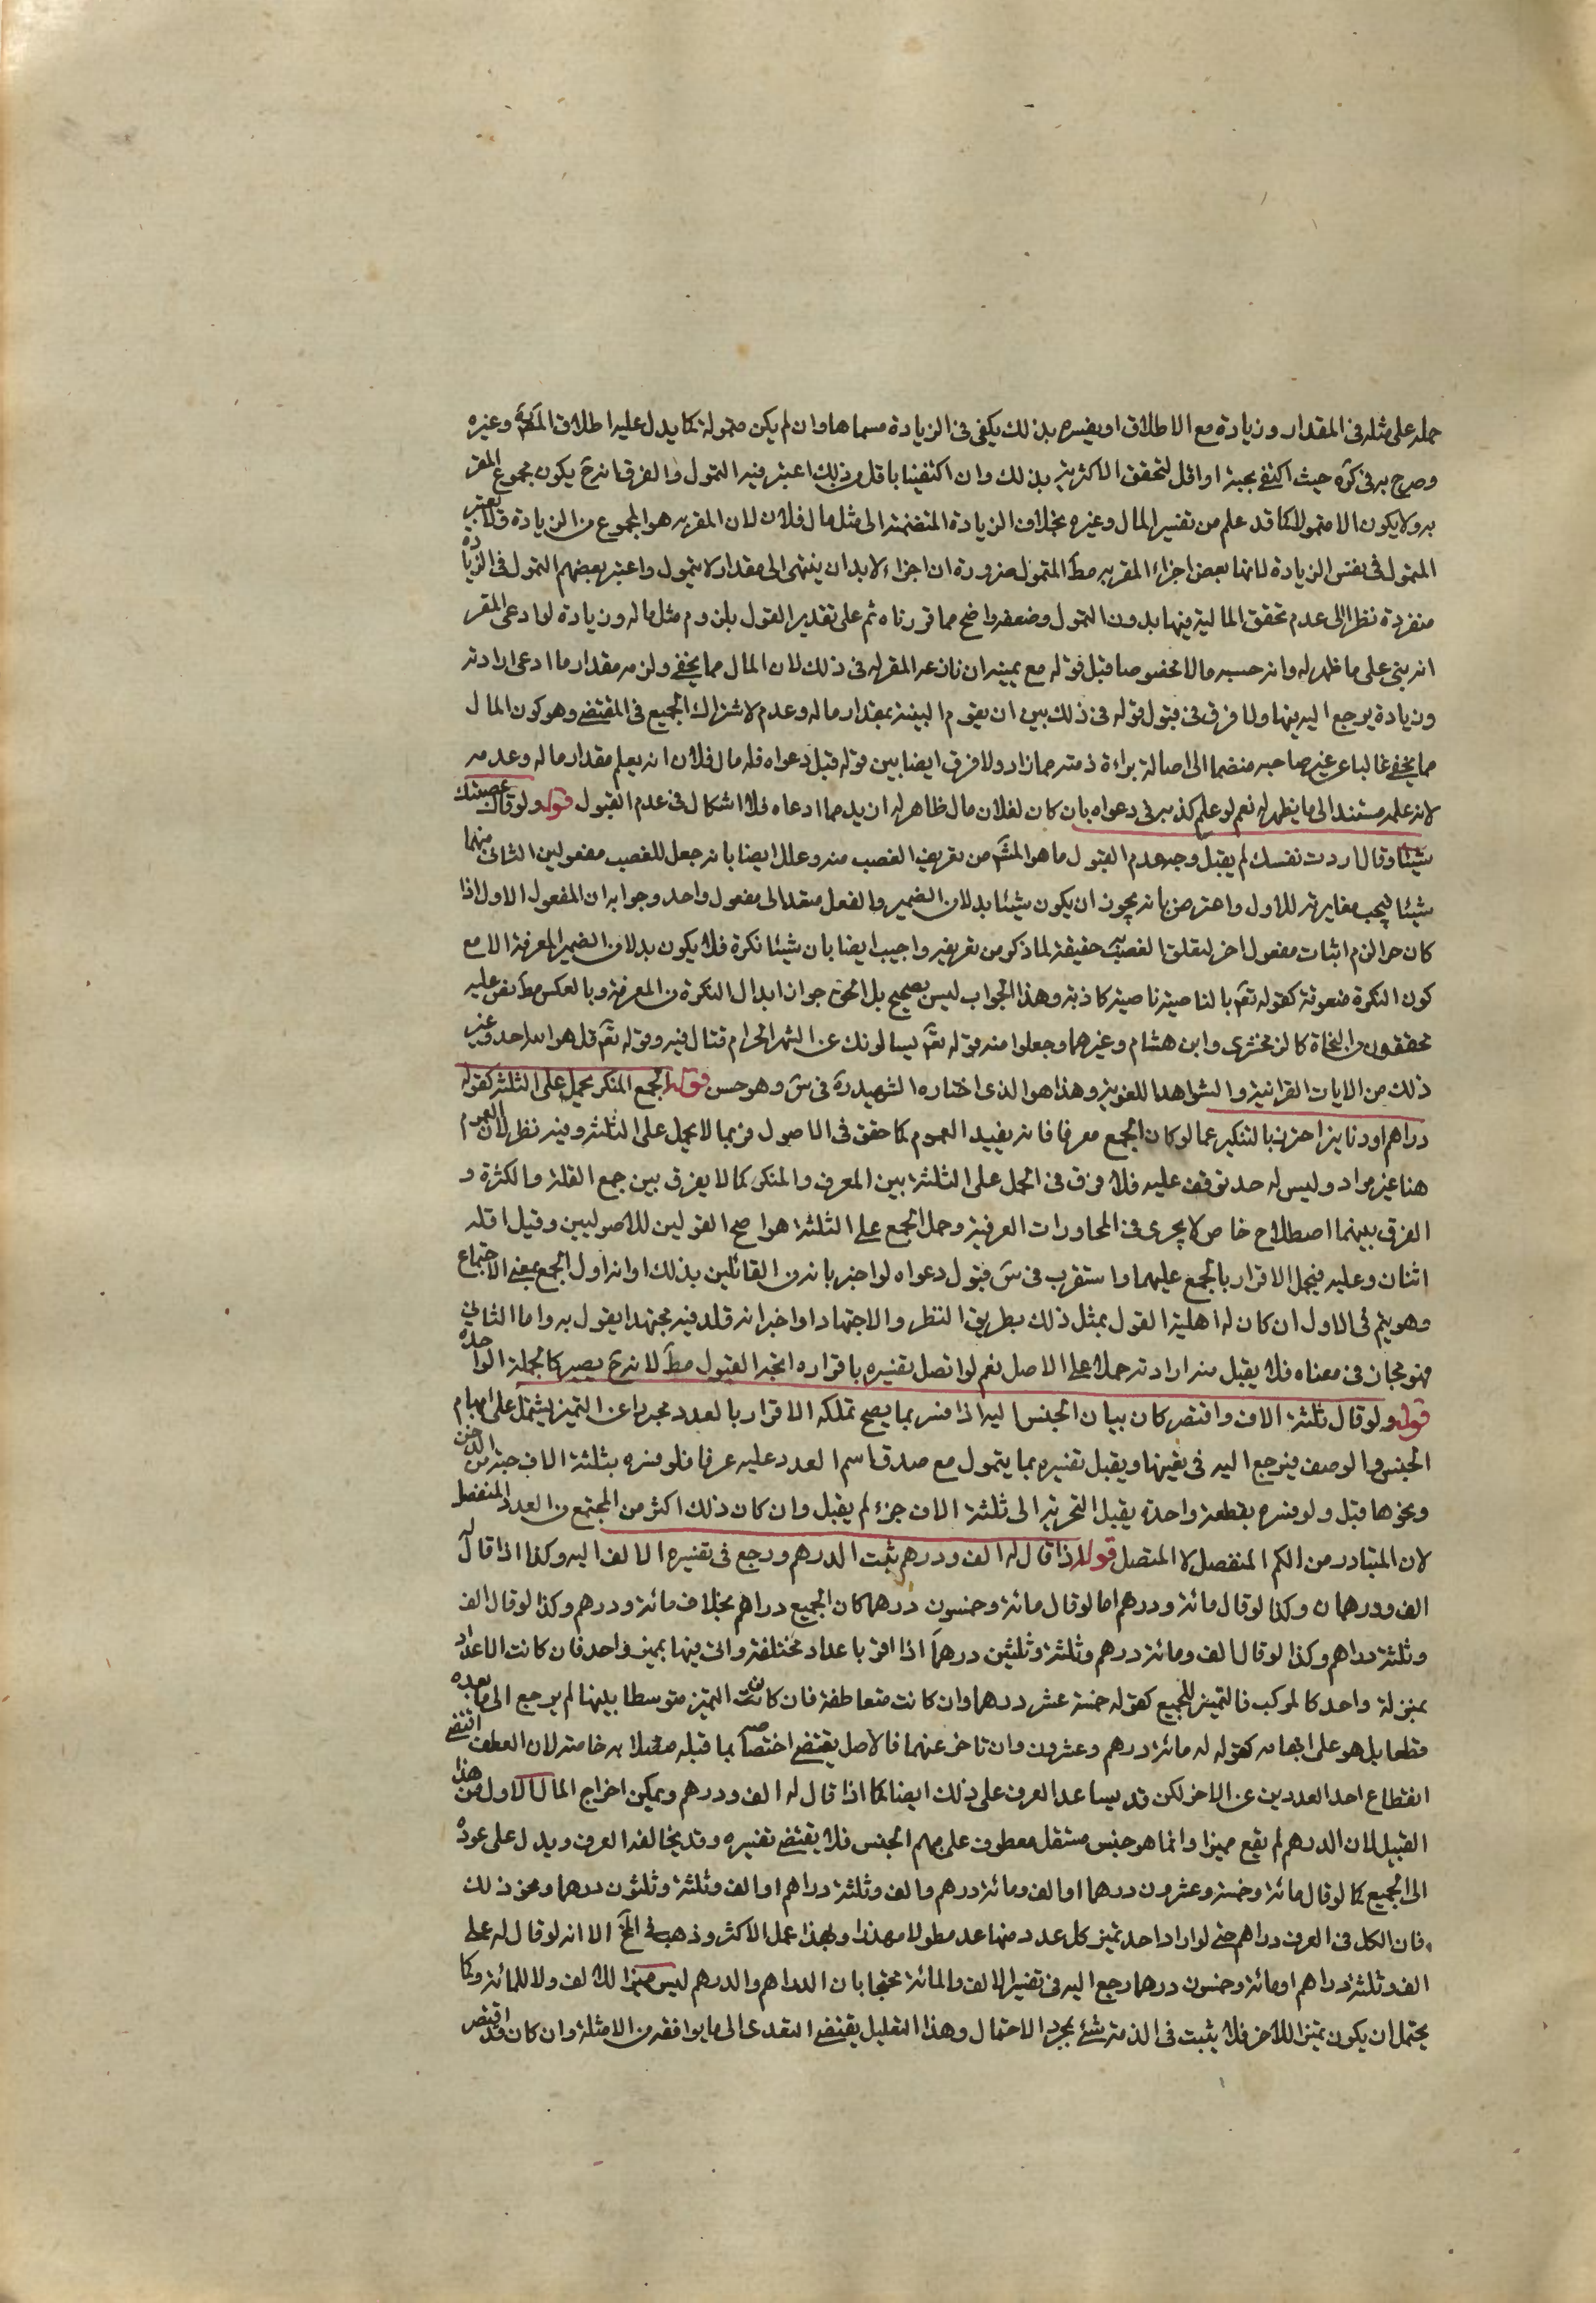 حمله على مثله في المقدار وزيادة مع الاطلاق او يفسره بذلك يكفي في الزيادة مسماها وان لم يكن متمولة كما يدل عليه اطلاق المصَ وغيره
وصرح به في كرَه حيث اكتفى بحبة او اقل لتحقق الاكثرية بذلك وان اكتفينا باقل من ذلك اعتبر فيه التمول والفرق انه حَ يكون مجموع المقر
به ولا يكون الا متمولا كما قد علم من تفسير المال وغيره بخلاف الزيادة المنضمة الى مثل مال فلان لان المقر به هو المجموع من الزيادة فلا يعتبر
المتمول في نفس الزيادة لانها بعض اجزاء المقر به مطَ المتمول ضرورة ان اجزاءه لا بد ان ينتهى الى مقدار لا يتمول واعتبر بعضهم التمول في الزيادة
منفردة نظرا الى عدم تحقق المالية فيها بدون التمول وضعفه واضح مما قررناه ثم على تقدير القول بلزوم مثل ماله وزيادة لو ادعى المقر
انه بنى على ما ظهر له وانه حسبه مالا مخصوصا قبل قوله مع يمينه ان نازعه المقر له في ذلك لان المال مما يخفى ولزمه مقدار ما ادعى ارادته
وزيادة يرجع اليه فيها ولا فرق في قبول قوله في ذلك بين ان يقوم البينة بمقدار ماله وعدمه لاشتراك الجميع في المقتضى وهو كون المال
مما يخفى غالبا عن غير صاحبه منضما الى اصالة براءة ذمته مما زاد ولا فرق ايضا بين قوله قبل دعواه فله مال فلان انه يعلم مقدار ماله وعدمه
لانه علمه مستند الى ما يظهر له نعم لو علم كذبه في دعواه بان كان لفلان مال ظاهر له ان يد مما ادعاه فلا اشكال في عدم القبول قوله ولو قال غصبتك
شيئا وقال اردت نفسك لم يقبل وجه عدم القبول ما هو المشَ من تعريف الغصب منه وعلل ايضا بانه جعل للغصب مفعولين الثانى منهما
شيئا فيجب مغايرته للاول واعترض بانه يجوز ان يكون شيئا بدلا من الضمير والفعل متعد الى مفعول واحد وجوابه ان المفعول الاول اذا
كان حرا لزم اثبات مفعول اخر لتعلق الغصب به حقيقة لما ذكر من تعريفه واجيب ايضا بان شيئا نكرة فلا يكون بدلا من الضمير المعرفة الا مع
كون النكرة منعوتة كقوله تعَ بالناصية ناصية كاذبة وهذا الجواب ليس بصحيح بل الحق جواز ابدال النكرة من المعرفة وبالعكس مطَ نص عليه
محققون من النحاة كالزمخشرى وابن هشام وغيرهما وجعلوا منه قوله تعَ يسالونك عن الشهر الحرام قتال فيه وقوله تعَ قل هو الله احد وغير
ذلك من الايات القرانية والشواهد اللغوية وهذا هو الذى اختاره الشهيد رهَ في سَ وهو حسن قوله الجمع المنكر يحمل على الثلثة كقوله
دراهم او دنانير احترز بالتنكير عما لو كان الجمع معرفا فانه يفيد العموم كما حقق في الاصول فربما لا يحمل على الثلثة وفيه نظر لان العموم
هنا غير مراد وليس له حد توقف عليه فلا فرق في الحمل على الثلثة بين المعرف والمنكر كما لا يفرق بين جمع القلة والكثرة و
الفرق بينهما اصطلاح خاص لا يجرى في المحاورات العرفية وحمل الجمع على الثلثة هو اصح القولين للاصوليين وقيل اقله
اثنان وعليه فيحمل الاقرار بالجمع عليهما واستقرب في سَ قبول دعواه لو اخبر بانه من القائلين بذلك او انه اول الجمع بمعنى الاجتماع
وهو يتم في الاول ان كان له اهلية القول بمثل ذلك بطريق النظر والاجتهاد او اخبر انه قلد فيه مجتهدا يقول به واما الثانى
فهو مجاز في معناه فلا يقبل منه ارادته حملا على الاصل نعم لو اتصل تفسيره باقراره اتجه القبول مطَ لانه حَ يصير كالجملة الواحدة
قوله ولو قال ثلثة الاف واقتصر كان بيان الجنس اليه اذا فسر بما يصح تملكه الاقرار بالعدد مجردا عن التميز يشتمل على ابهام
الجنس والوصف فيرجع اليه في تعيينها ويقبل تفسيره بما يتمول مع صدق اسم العدد عليه عرفا فلو فسره بثلثة الاف حبة من الدخن
ونحوها قبل ولو فسره بقطعة واحدة يقبل التجزية الى ثلثة الاف جزء لم يقبل وان كان ذلك اكثر من المجتمع من العدد المنفصل
لان المتبادر من الكم المنفصل لا المتصل قوله اذا قال له الف ودرهم ثبت الدرهم ورجع في تفسيره الالف اليه وكذا اذا قال له
الف ودرهمان وكذا لو قال مائة ودرهم اما لو قال مائة وخمسون درهما كان الجميع دراهم بخلاف مائة ودرهم وكذا لو قال الف
وثلثة دراهم وكذا لو قال الف ومائة درهم وثلثة وثلثين درهمًا اذا اقر باعداد مختلفة واتى فيها بمميز واحد فان كانت الاعداد
بمنزلة واحد كالمركب فالتميز للجميع كقوله خمسة عشر درهما وان كانت متعاطفة فان كان التميز متوسطا بينها لم يرجع الى ما بعده
قطعا بل هو على ابهامه كقوله له مائة درهم وعشرون وان تاخر عنهما فالاصل يقتضى اختصاصه بما قبله متصلا به خاصة لان العطف اقتضى
انقطاع احد العددين عن الاخر لكن قد يساعد العرف على ذلك ايضا كما اذا قال له الف ودرهم ويمكن اخراج المال الاول من هذا
القبيل لان الدرهم لم يقع مميزا وانما هو جنس مستقل معطوف على مبهم الجنس فلا يقتضى تفسيره وقد يخالف العرف ويدل على عوده
الى الجميع كما لو قال مائة وخمسة وعشرون درهما او الف ومائة درهم والف وثلثة دراهم او الف وثلثة وثلثون درهما ونحو ذلك
فان الكل في العرف دراهم حتى لو اراد احد تميز كل عدد منها عد مطولا مهذرا وبهذا عمل الاكثر وذهب في لَف الا انه لو قال له على
الف وثلثة دراهم او مائة وخمسون درهما رجع اليه في تفسير الالف والمائة محتجا بان الدراهم والدرهم ليس مميزا للالف ولا للمائة وكما
يحتمل ان يكون تميزا للاخر فلا يثبت في الذمة شئ بمجرد الاحتمال وهذا التعليل يقتضى التعدى الى ما يوافقه من الامثلة وان كان قد اقتصر